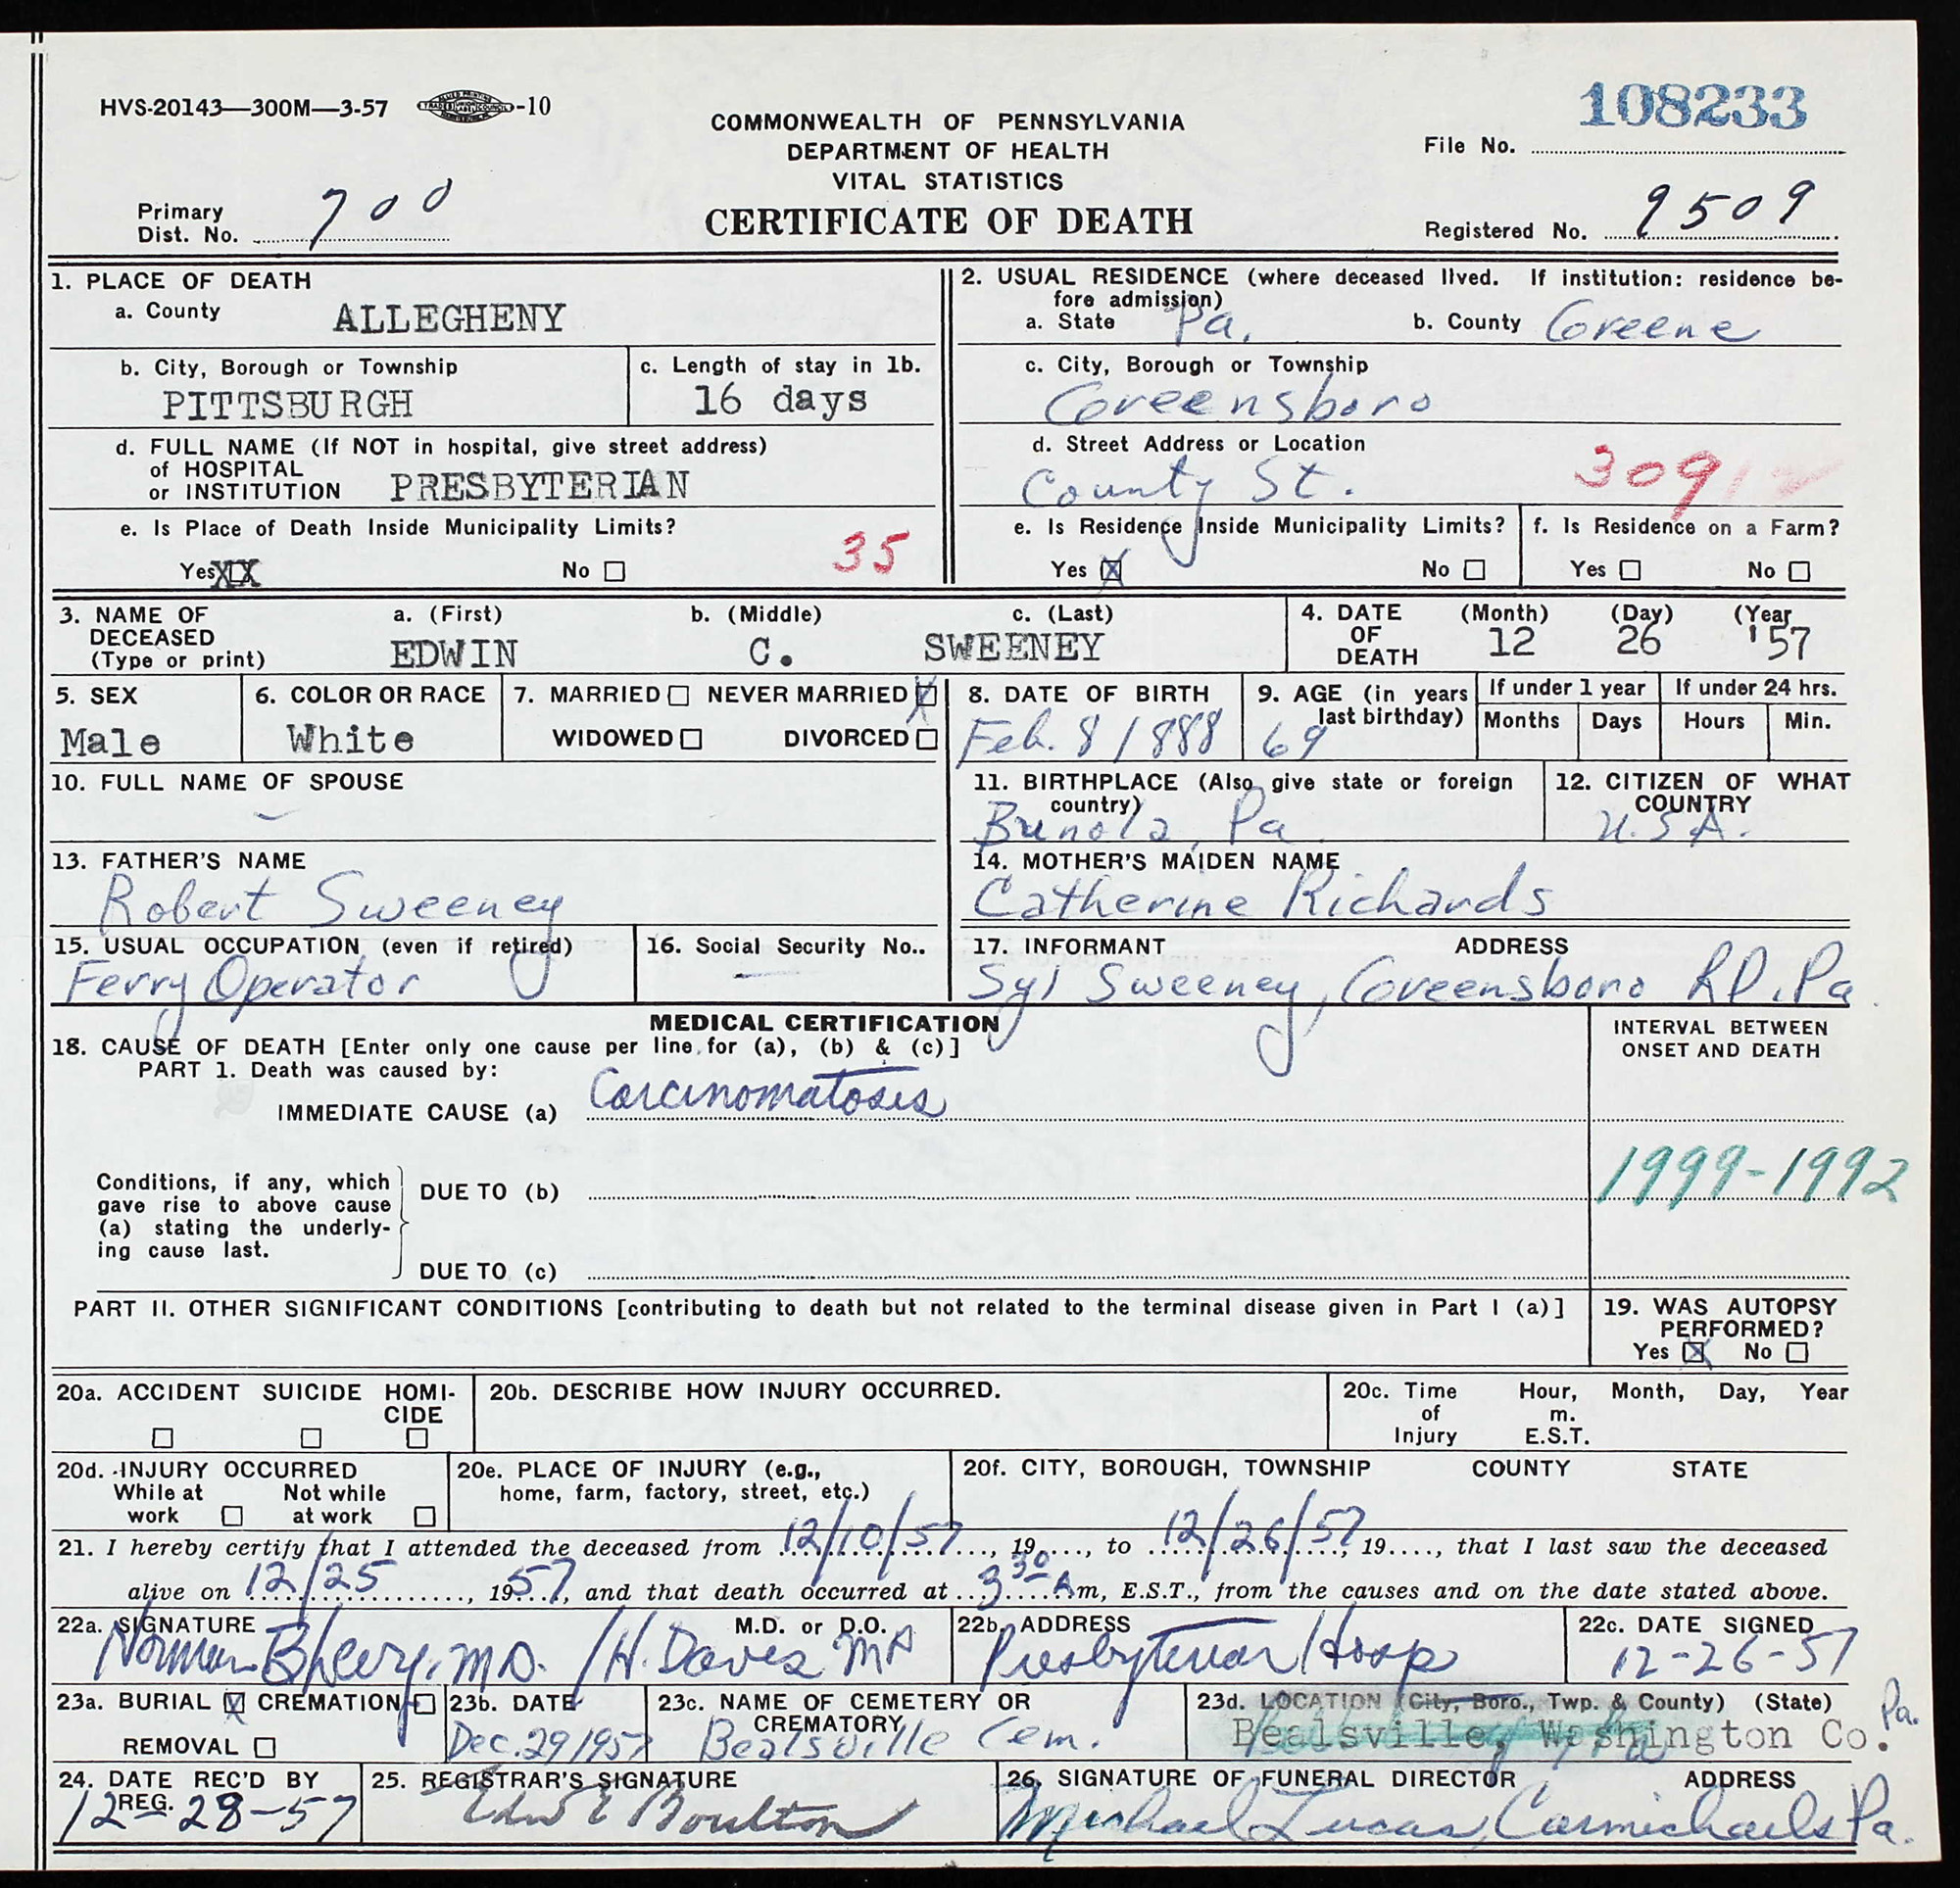 HVS-20143—300M—3-57 -10
108233
COMMONWEALTH OF PENNSYLVANIA
DEPARTMENT OF HEALTH
VITAL STATISTICS
CERTIFICATE OF DEATH
File No.
Primary Dist. No. 700
Registered No. 9509
1. PLACE OF DEATH
a. County ALLEGHENY
b. City, Borough or Township
PITTSBURGH
c. Length of stay in 1b.
16 days
d. FULL NAME (If NOT in hospital, give street address)
of HOSPITAL
or INSTITUTION PRESBYTERIAN
e. Is Place of Death Inside Municipality Limits?
35
Yes XX No
2. USUAL RESIDENCE (where deceased lived. If institution: residence be-
fore admission)
a. State Pa. b. County Greene
c. City, Borough or Township
Greensboro
d. Street Address or Location
County St.
309
e. Is Residence Inside Municipality Limits?
Yes X No
f. Is Residence on a Farm?
Yes No
3. NAME OF DECEASED
(Type or print)
a. (First) b. (Middle) c. (Last)
EDWIN C. SWEENEY
4. DATE OF DEATH
(Month) (Day) (Year
12 26 '57
5. SEX
Male
6. COLOR OR RACE
White
7. MARRIED NEVER MARRIED X
WIDOWED DIVORCED
8. DATE OF BIRTH
Feb. 8 1888
9. AGE (in years
last birthday)
69
If under 1 year
Months Days
If under 24 hrs.
Hours Min.
10. FULL NAME OF SPOUSE
—
11. BIRTHPLACE (Also give state or foreign
country)
Bunola, Pa
12. CITIZEN OF WHAT
COUNTRY
U.S.A.
13. FATHER'S NAME
Robert Sweeney
14. MOTHER'S MAIDEN NAME
Catherine Richards
15. USUAL OCCUPATION (even if retired)
Ferry Operator
16. Social Security No..
—
17. INFORMANT ADDRESS
Syl Sweeney, Greensboro RD. Pa
MEDICAL CERTIFICATION
18. CAUSE OF DEATH [Enter only one cause per line for (a), (b) & (c)]
PART 1. Death was caused by:
IMMEDIATE CAUSE (a) Carcinomatosis
INTERVAL BETWEEN
ONSET AND DEATH
Conditions, if any, which
gave rise to above cause
(a) stating the underly-
ing cause last.
DUE TO (b)
1999-1992
DUE TO (c)
PART II. OTHER SIGNIFICANT CONDITIONS [contributing to death but not related to the terminal disease given in Part I (a)]
19. WAS AUTOPSY
PERFORMED?
Yes X No
20a. ACCIDENT SUICIDE HOMI-
CIDE
20b. DESCRIBE HOW INJURY OCCURRED.
20c. Time Hour, Month, Day, Year
of m.
Injury E.S.T.
20d. INJURY OCCURRED
While at Not while
work at work
20e. PLACE OF INJURY (e.g.,
home, farm, factory, street, etc.)
20f. CITY, BOROUGH, TOWNSHIP COUNTY STATE
21. I hereby certify that I attended the deceased from 12/10/57, 19...., to 12/26/57, 19...., that I last saw the deceased
alive on 12/25, 1957, and that death occurred at 3 30 Am, E.S.T., from the causes and on the date stated above.
22a. SIGNATURE M.D. or D.O.
Norman MD. /H. Davis MD
22b. ADDRESS
Presbyterian Hosp
22c. DATE SIGNED
12-26-57
23a. BURIAL X CREMATION
REMOVAL
23b. DATE
Dec. 29 1957
23c. NAME OF CEMETERY OR
CREMATORY
Bealsville Cem.
23d. LOCATION (City, Boro., Twp. & County) (State)
Bealsville, Washington Co. Pa.
24. DATE REC'D BY
REG.
12-28-57
25. REGISTRAR'S SIGNATURE
Edw E Boulton
26. SIGNATURE OF FUNERAL DIRECTOR ADDRESS
Michael Lucas, Carmichaels Pa.